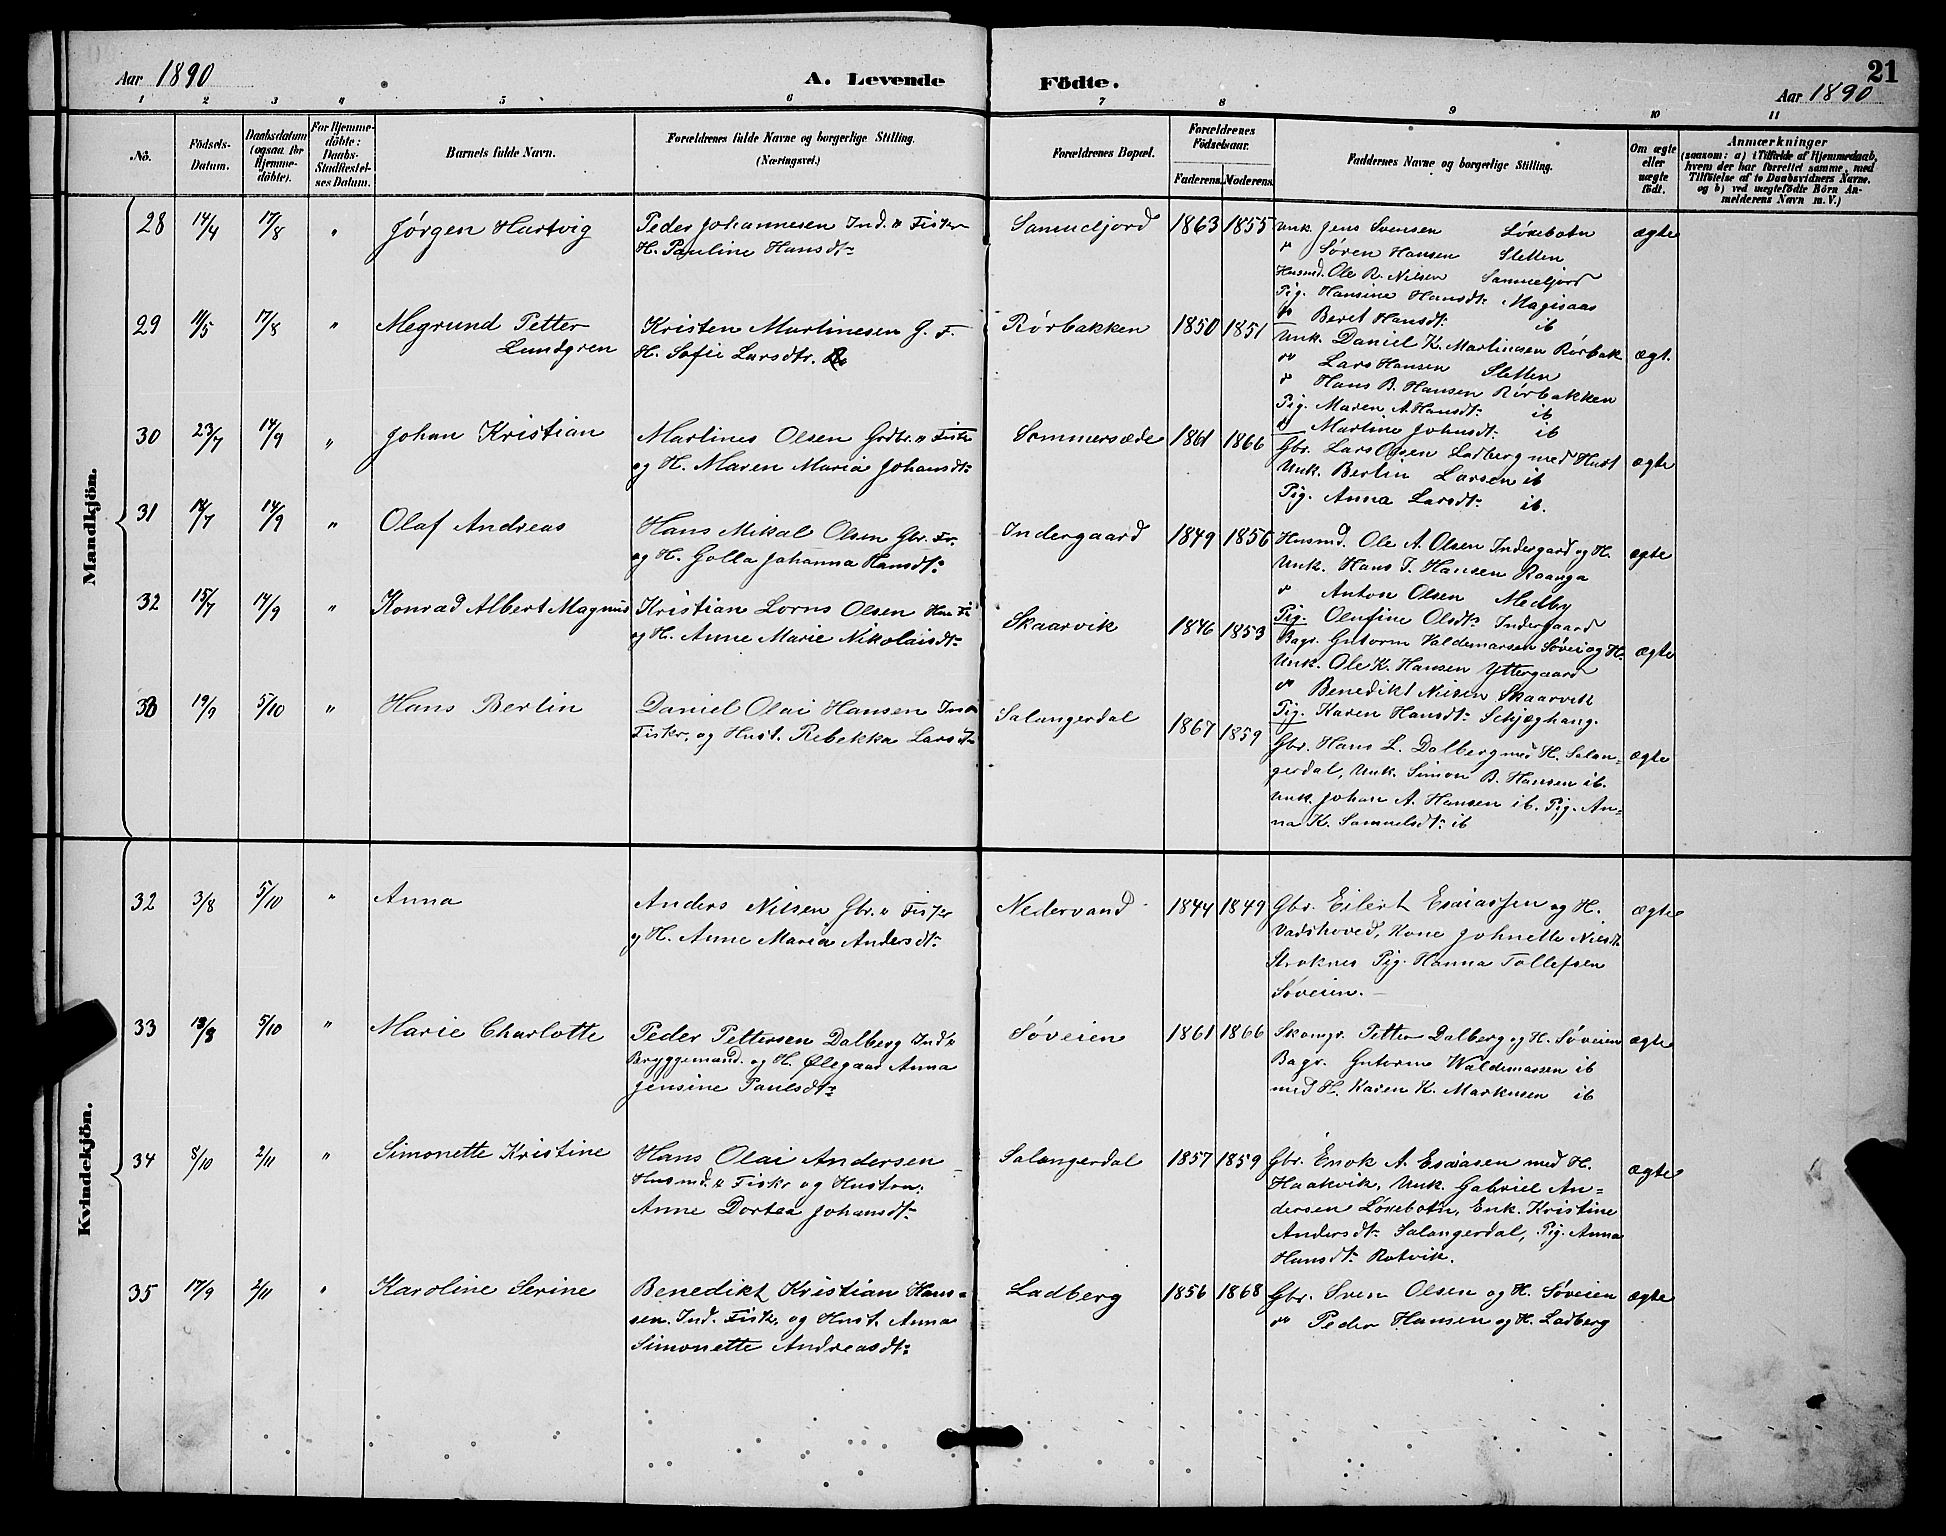 Aar 1890
A. Levende Födte.
21
Aar 1890
1 2 3 4 5 6 7 8 9 10 11
No.
Födsels-
Datum.
Daabsdatum
(ogsaa for
Hjemme-
döbte).
For Hjemme-
döbte:
Daabs-
Stadfæstel-
ses Datum.
Barnets fulde Navn.
Forældrenes fulde Navne og borgerlige Stilling.
(Næringsvei.)
Forældrenes Bopæl.
Forældrenes
Födselsaar.
Faderens. Moderens.
Faddernes Navne og borgerlige Stilling.
Om ægte
eller
uægte
födt.
Anmærkninger
(saasom: a) i Tilfælde af Hjemmedaab,
hvem der har forrettet samme, med
Tilföielse af to Daabsvidners Navne,
og b) ved uægtefödte Börn An-
melderens Navn m. V.)
Mandkjön.
28 14/4 17/8 " Jørgen Hartvig
Peder Johannesen Ind. & Fisker
H. Pauline Hansdt:
Sammelfjord 1863 1855
Unk. Jens Svensen Løksebotn
" Søren Hansen Sletten
Husmd. Ole R. Nilsen Sammelfjord
Pig. Hansine Hansdt: Magisaas
" Beret Hansdt: ib
ægte
29 11/5 17/8 " Megrund Petter
Lundgren
Kristen Martinesen G. F.
H. Sofie Larsdtr.
Rørbakken 1850 1851
Unk. Daniel K. Martinesen Rørbak
" Lars Hansen Sletten
" Hans B. Hansen Rørbakken
Pig. Maren A. Hansdt: ib
" Martine Johnsdt: ib
ægt.
30 23/7 14/9 " Johan Kristian
Martines Olsen Grdbr. & Fiskr
og H. Maren Maria Johansdt:
Sommersæde 1861 1866
Gbr. Lars Olsen Ladberg med Hust
Unk. Berlin Larsen ib
Pig. Anna Larsdt: ib.
ægte
31 14/7 14/9 " Olaf Andreas
Hans Mikal Olsen Gbr. Fr.
og H. Golla Johanna Hansdt:
Indergaard 1849 1856
Husmd. Ole A. Olsen Indergard og H.
Unk. Hans J. Hansen Raanga
" Anton Olsen Medby
Pig. Olufine Olsdt: Indergaard
ægte
32 15/7 14/9 " Konrad Albert Magnus
Kristian Lorns Olsen Hm Fi
og H. Anne Marie Nikolaisdt:
Skaarvik 1846 1853
Bagr. Gutorm Valdemarsen Søvei og H.
Unk. Ole K. Hansen Yttergaard
" Benedikt Nilsen Skaarvik
Pig. Karen Hansdt: Sehjæghang.
ægte
33 19/9 5/10 " Hans Berlin
Daniel Olai Hansen Ind &
Fiskr, og Hust. Rebekka Larsdt:
Salangerdal 1867 1859
Gbr. Hans L. Dalberg med H. Salan=
gerdal, Unk. Simon B. Hansen ib.
Unk. Johan A. Hansen ib. Pig. An=
na K. Samuelsdt: ib
ægte
Kvindekjön.
32 3/8 5/10 " Anna
Anders Nilsen Gbr. & Fisker
og H. Anne Maria Andersdt:
Nedervand 1844 1849
Gbr. Eilert Esaiassen og H.
Vadshoved, Kone Johnette Nilsdt
Stroknes Pig. Hanna Tollefsen
Søveien.
ægte
33 13/8 5/10 " Marie Charlotte
Peder Pettersen Dalberg Ind &
Bryggemand. og H. Ølegaar Anna
Jensine Paulsdt:
Søveien 1861 1866
Skomgr. Petter Dalberg og H. Søveien
Bagr. Gutorm Waldemarsen ib
med H. Karen K. Markusen ib
ægte
34 8/10 2/11 " Simonette Kristine
Hans Olai Andersen
Husmd. & Fiskr og Huston:
Anne Dortea Johansdt:
Salangerdal 1857 1859
Gbr. Enok A. Esaiasen med H.
Haakvik, Unk. Gabriel An=
dersen Løksebotn, Enk. Kristine
Andersdt: Salangerdal, Pig. Anna
Hansdt: Rotvik.
ægte
35 17/9 2/11 " Karoline Serine
Benedikt Kristian Han=
sen. Ind. Fiskr, og Hust. Anna
Simonette Andreasdt:
Ladberg 1856 1868
Gbr. Sven Olsen og H. Søveien
" Peder Hansen og H. Ladberg
ægte